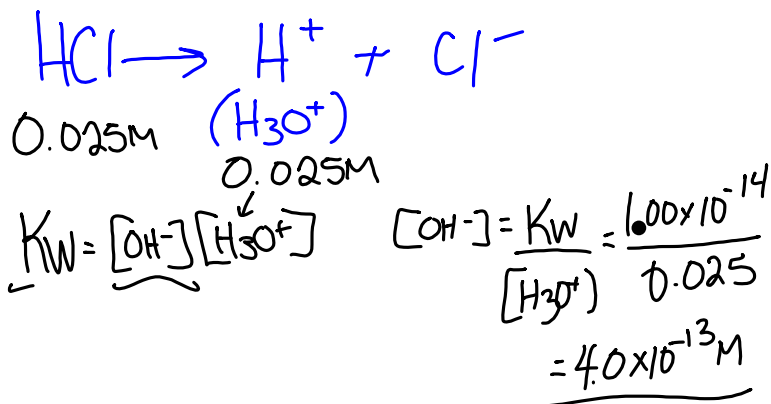 HCl → H⁺ + Cl⁻
(H₃O⁺)
0.025M
0.025M
Kw = [OH⁻][H₃O⁺]
[OH⁻] = Kw / [H₃O⁺) = 1.00×10⁻¹⁴ / 0.025
= 4.0×10⁻¹³ M